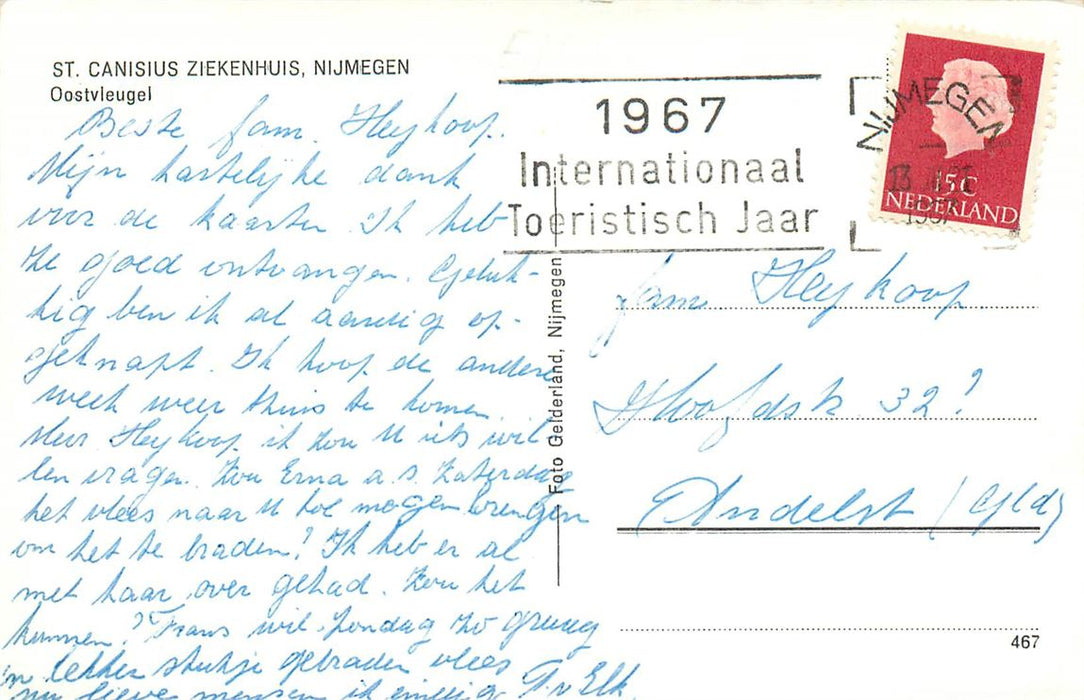 ST. CANISIUS ZIEKENHUIS, NIJMEGEN
Oostvleugel
Beste fam. Heykoop.
Mijn hartelijke dank
voor de kaarten. Ik heb
ze goed ontvangen. Geluk-
kig ben ik al aardig op-
geknapt. Ik hoop de andere
week weer thuis te komen.
Mevr Heykoop, ik zou U iets wil-
len vragen. Zou Erna a.s. Zaterdag
het vlees naar U toe mogen brengen
om het te braden? Ik heb er al
met haar over gehad. Zou het
kunnen? Frans wil Zondag zo graag
'n lekker stukje gebraden vlees
nu lieve mensen ik eindig
1967
Internationaal
Toeristisch Jaar
NIJMEGEN
13
1967
15C
NEDERLAND
Foto Gelderland, Nijmegen
fam Heykoop
Hoofdstr. 32?
Andelst (Gld)
467